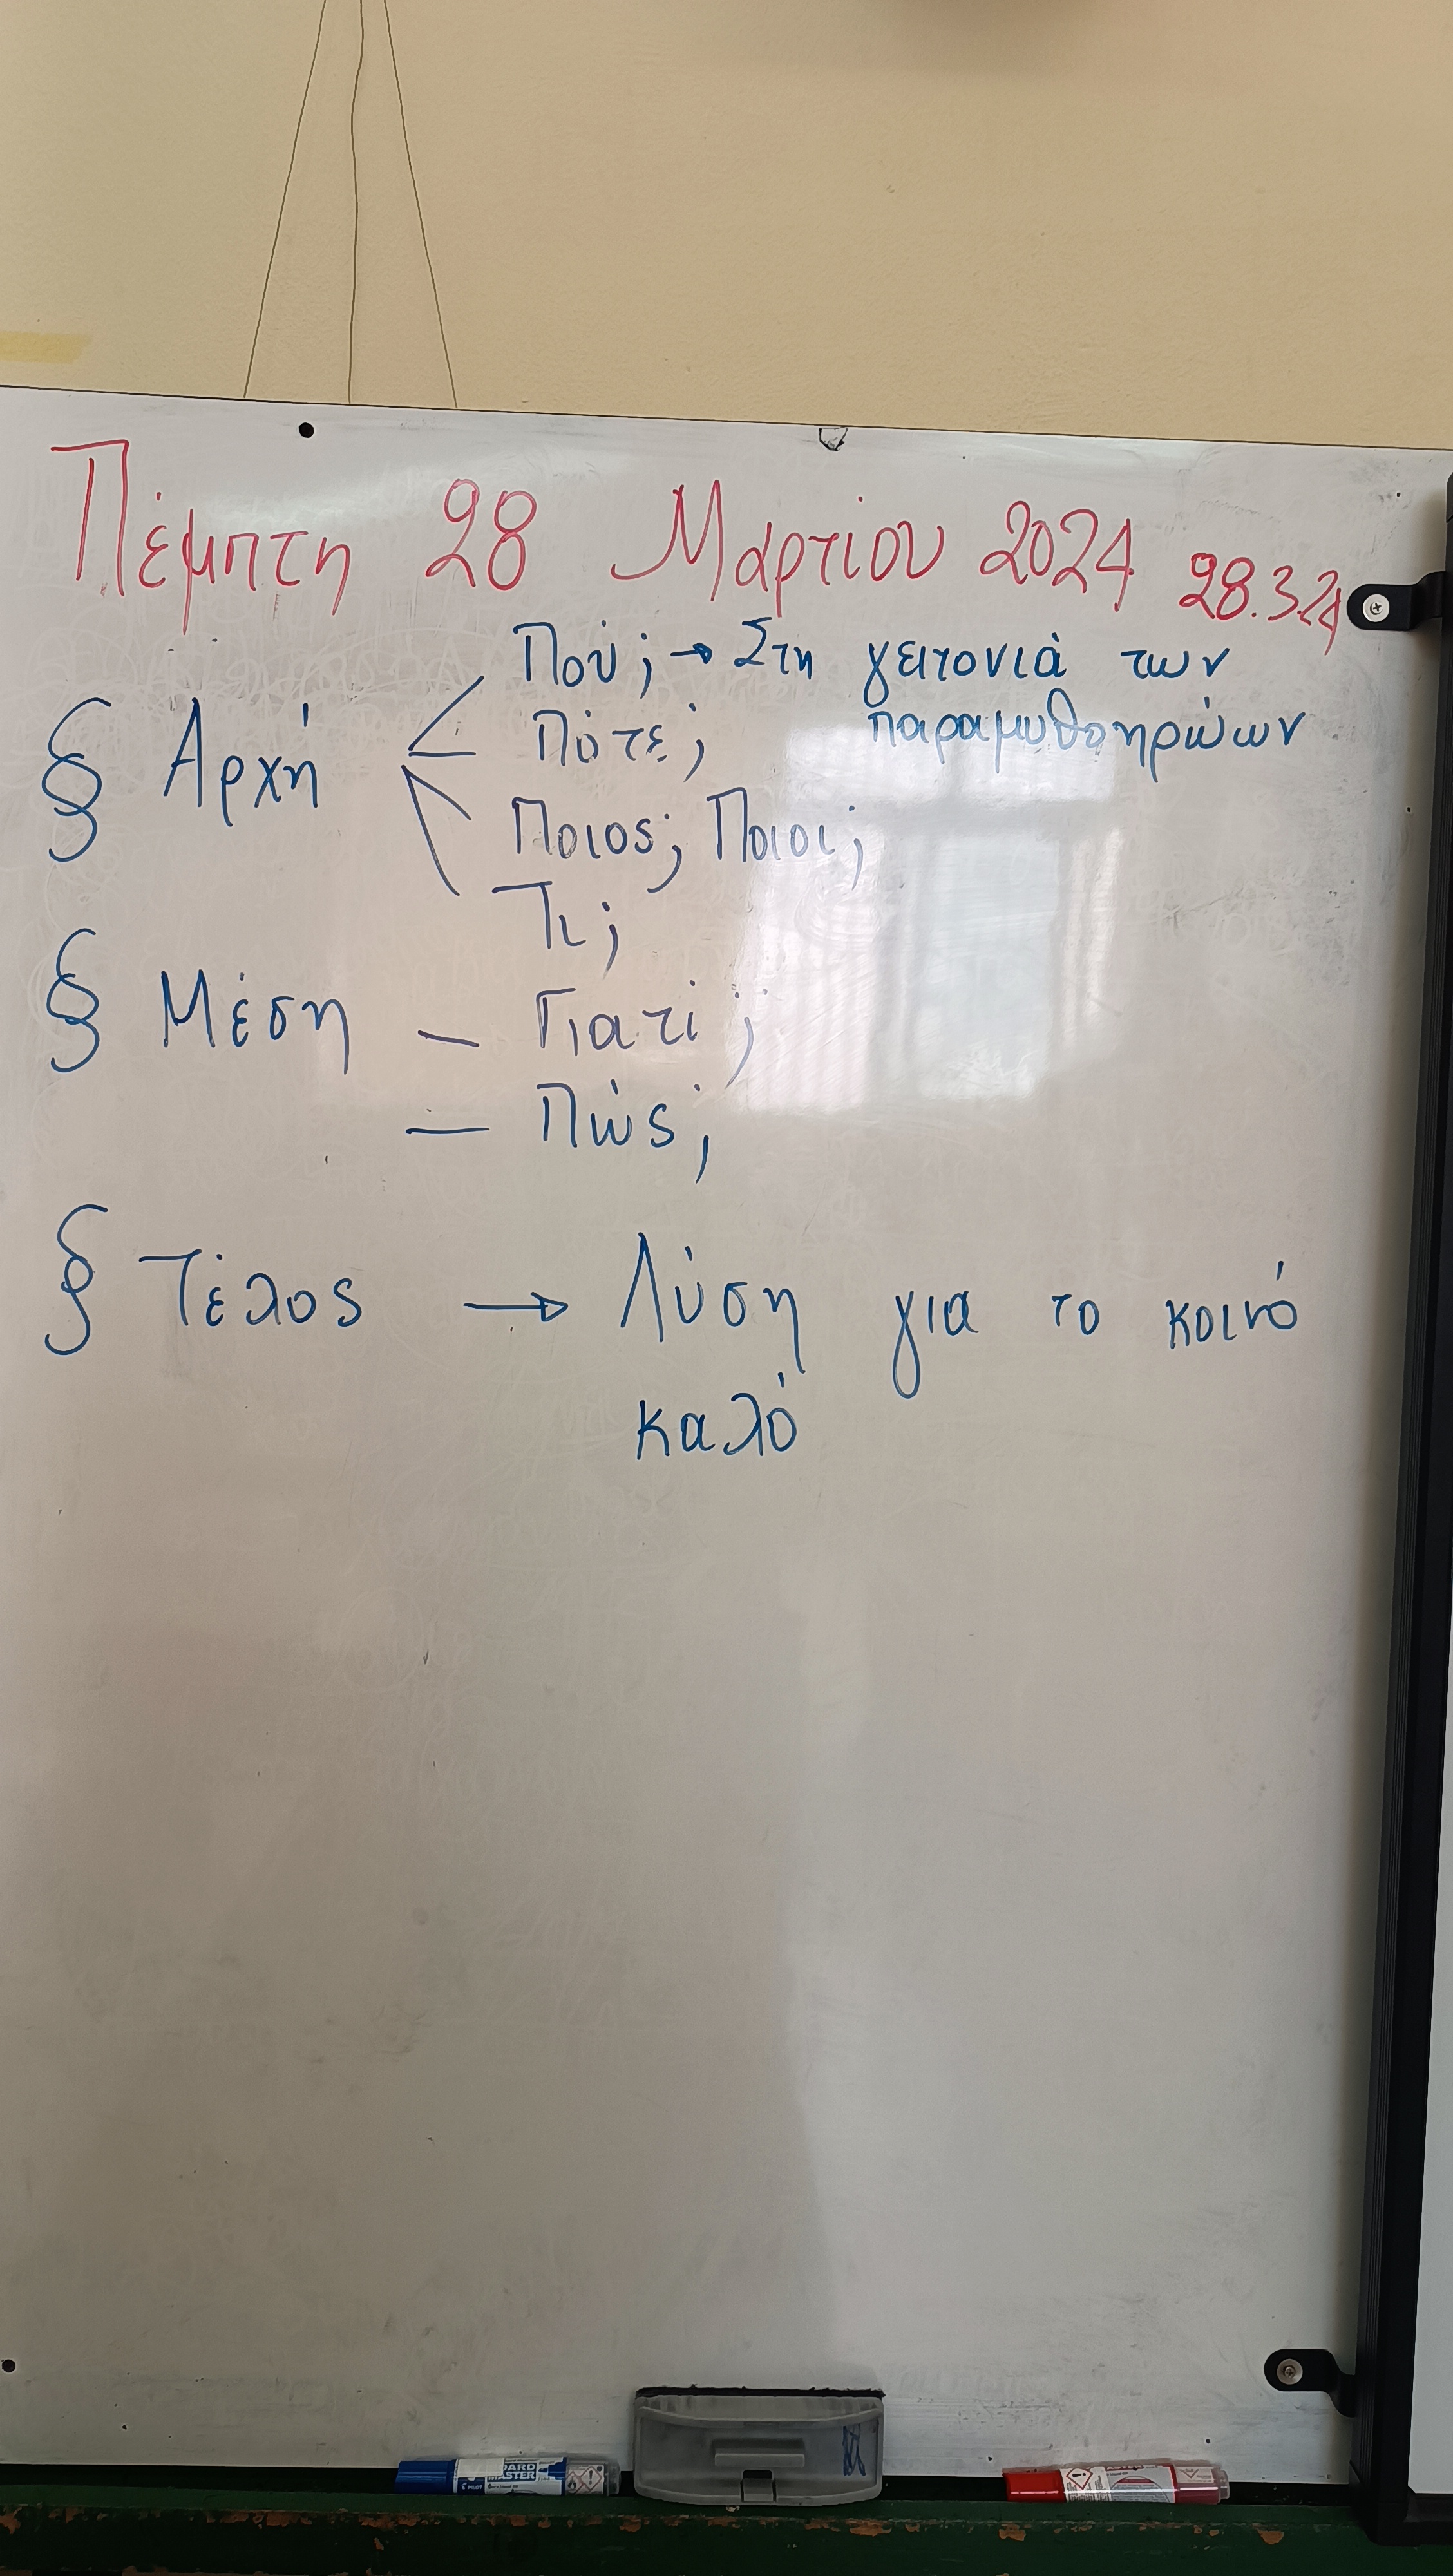 Πέμπτη 28 Μαρτίου 2024 28.3.24
Πού; → Στη γειτονιά των
παραμυθοηρώων
§ Αρχή
Πότε;
Ποιος; Ποιοι;
Τι;
§ Μέση - Γιατί;
- Πώς;
§ Τέλος → Λύση για το κοινό
καλό
BOARD
MASTER
PILOT